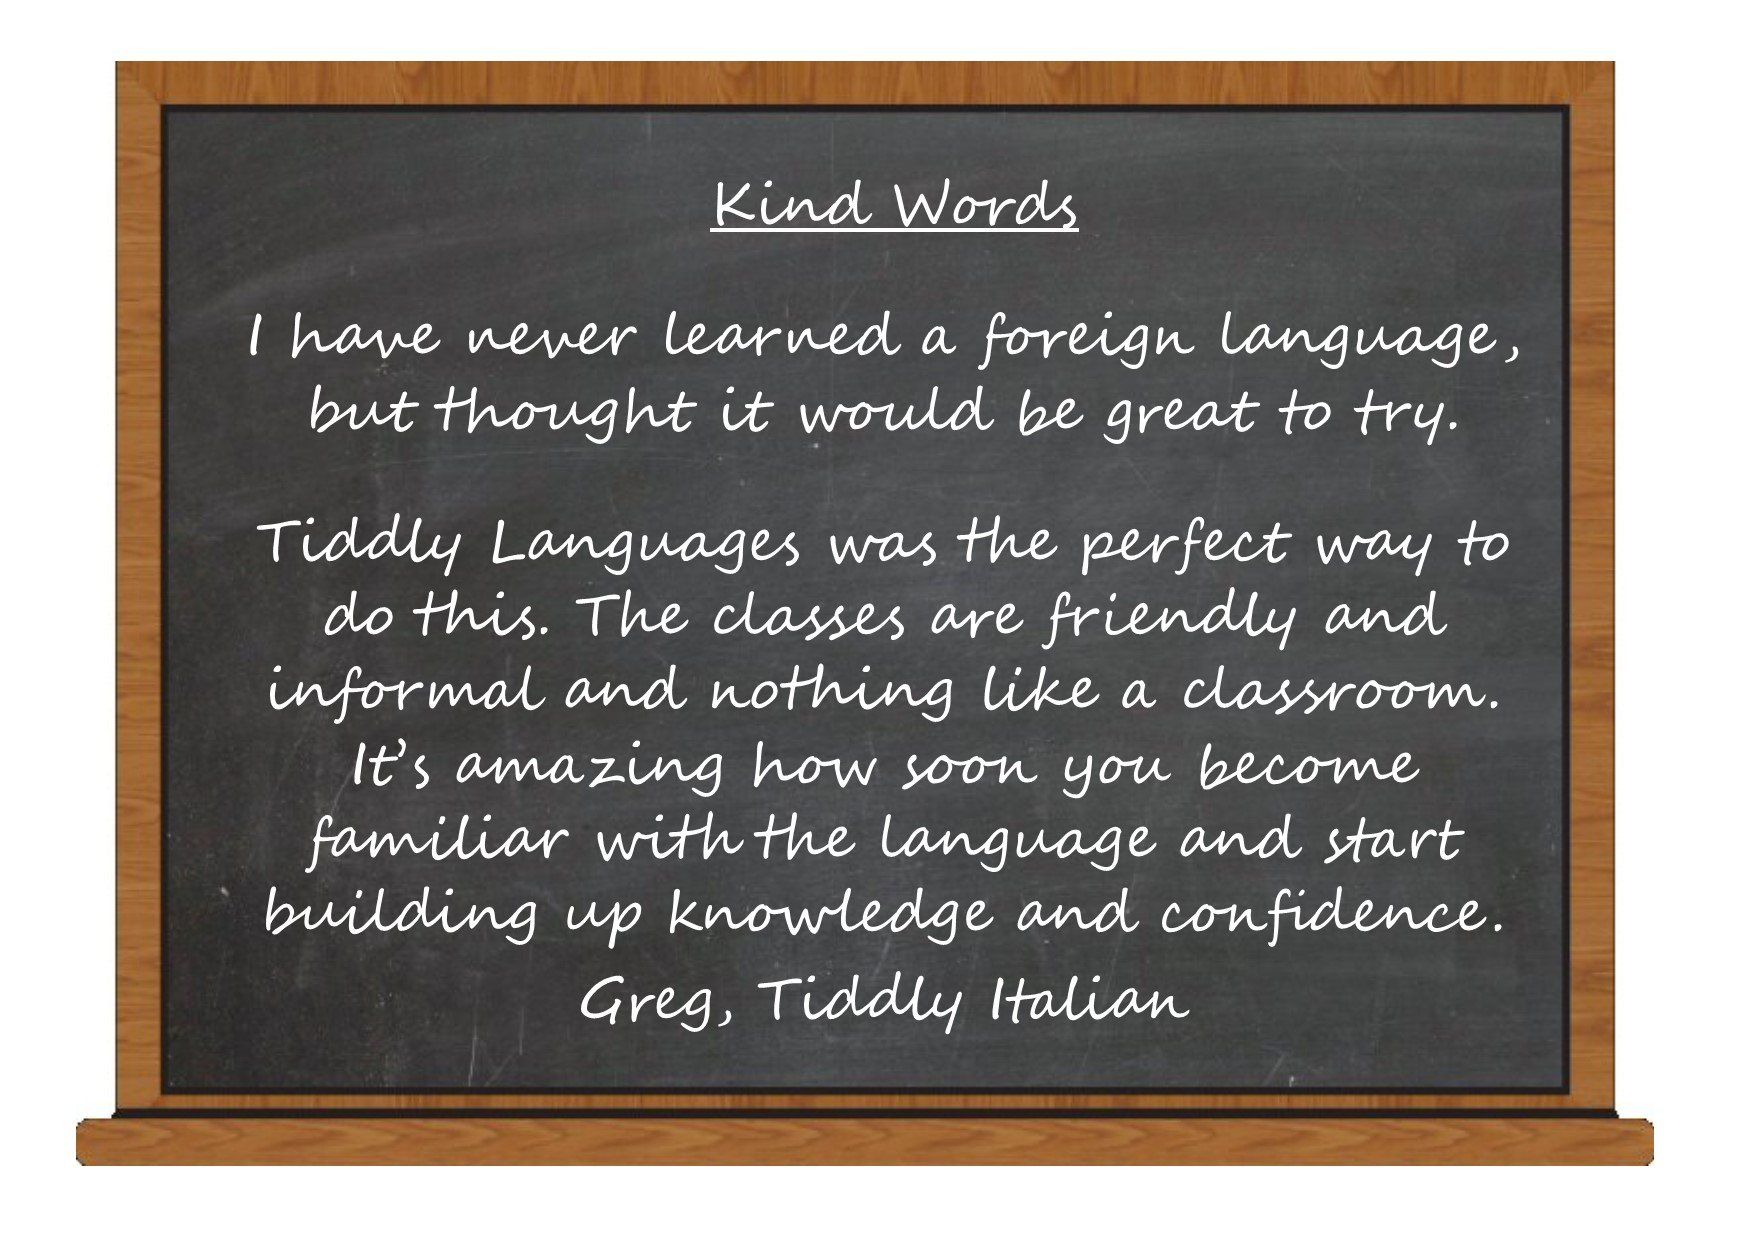 Kind Words
I have never learned a foreign language,
but thought it would be great to try.
Tiddly Languages was the perfect way to
do this. The classes are friendly and
informal and nothing like a classroom.
It’s amazing how soon you become
familiar with the language and start
building up knowledge and confidence.
Greg, Tiddly Italian